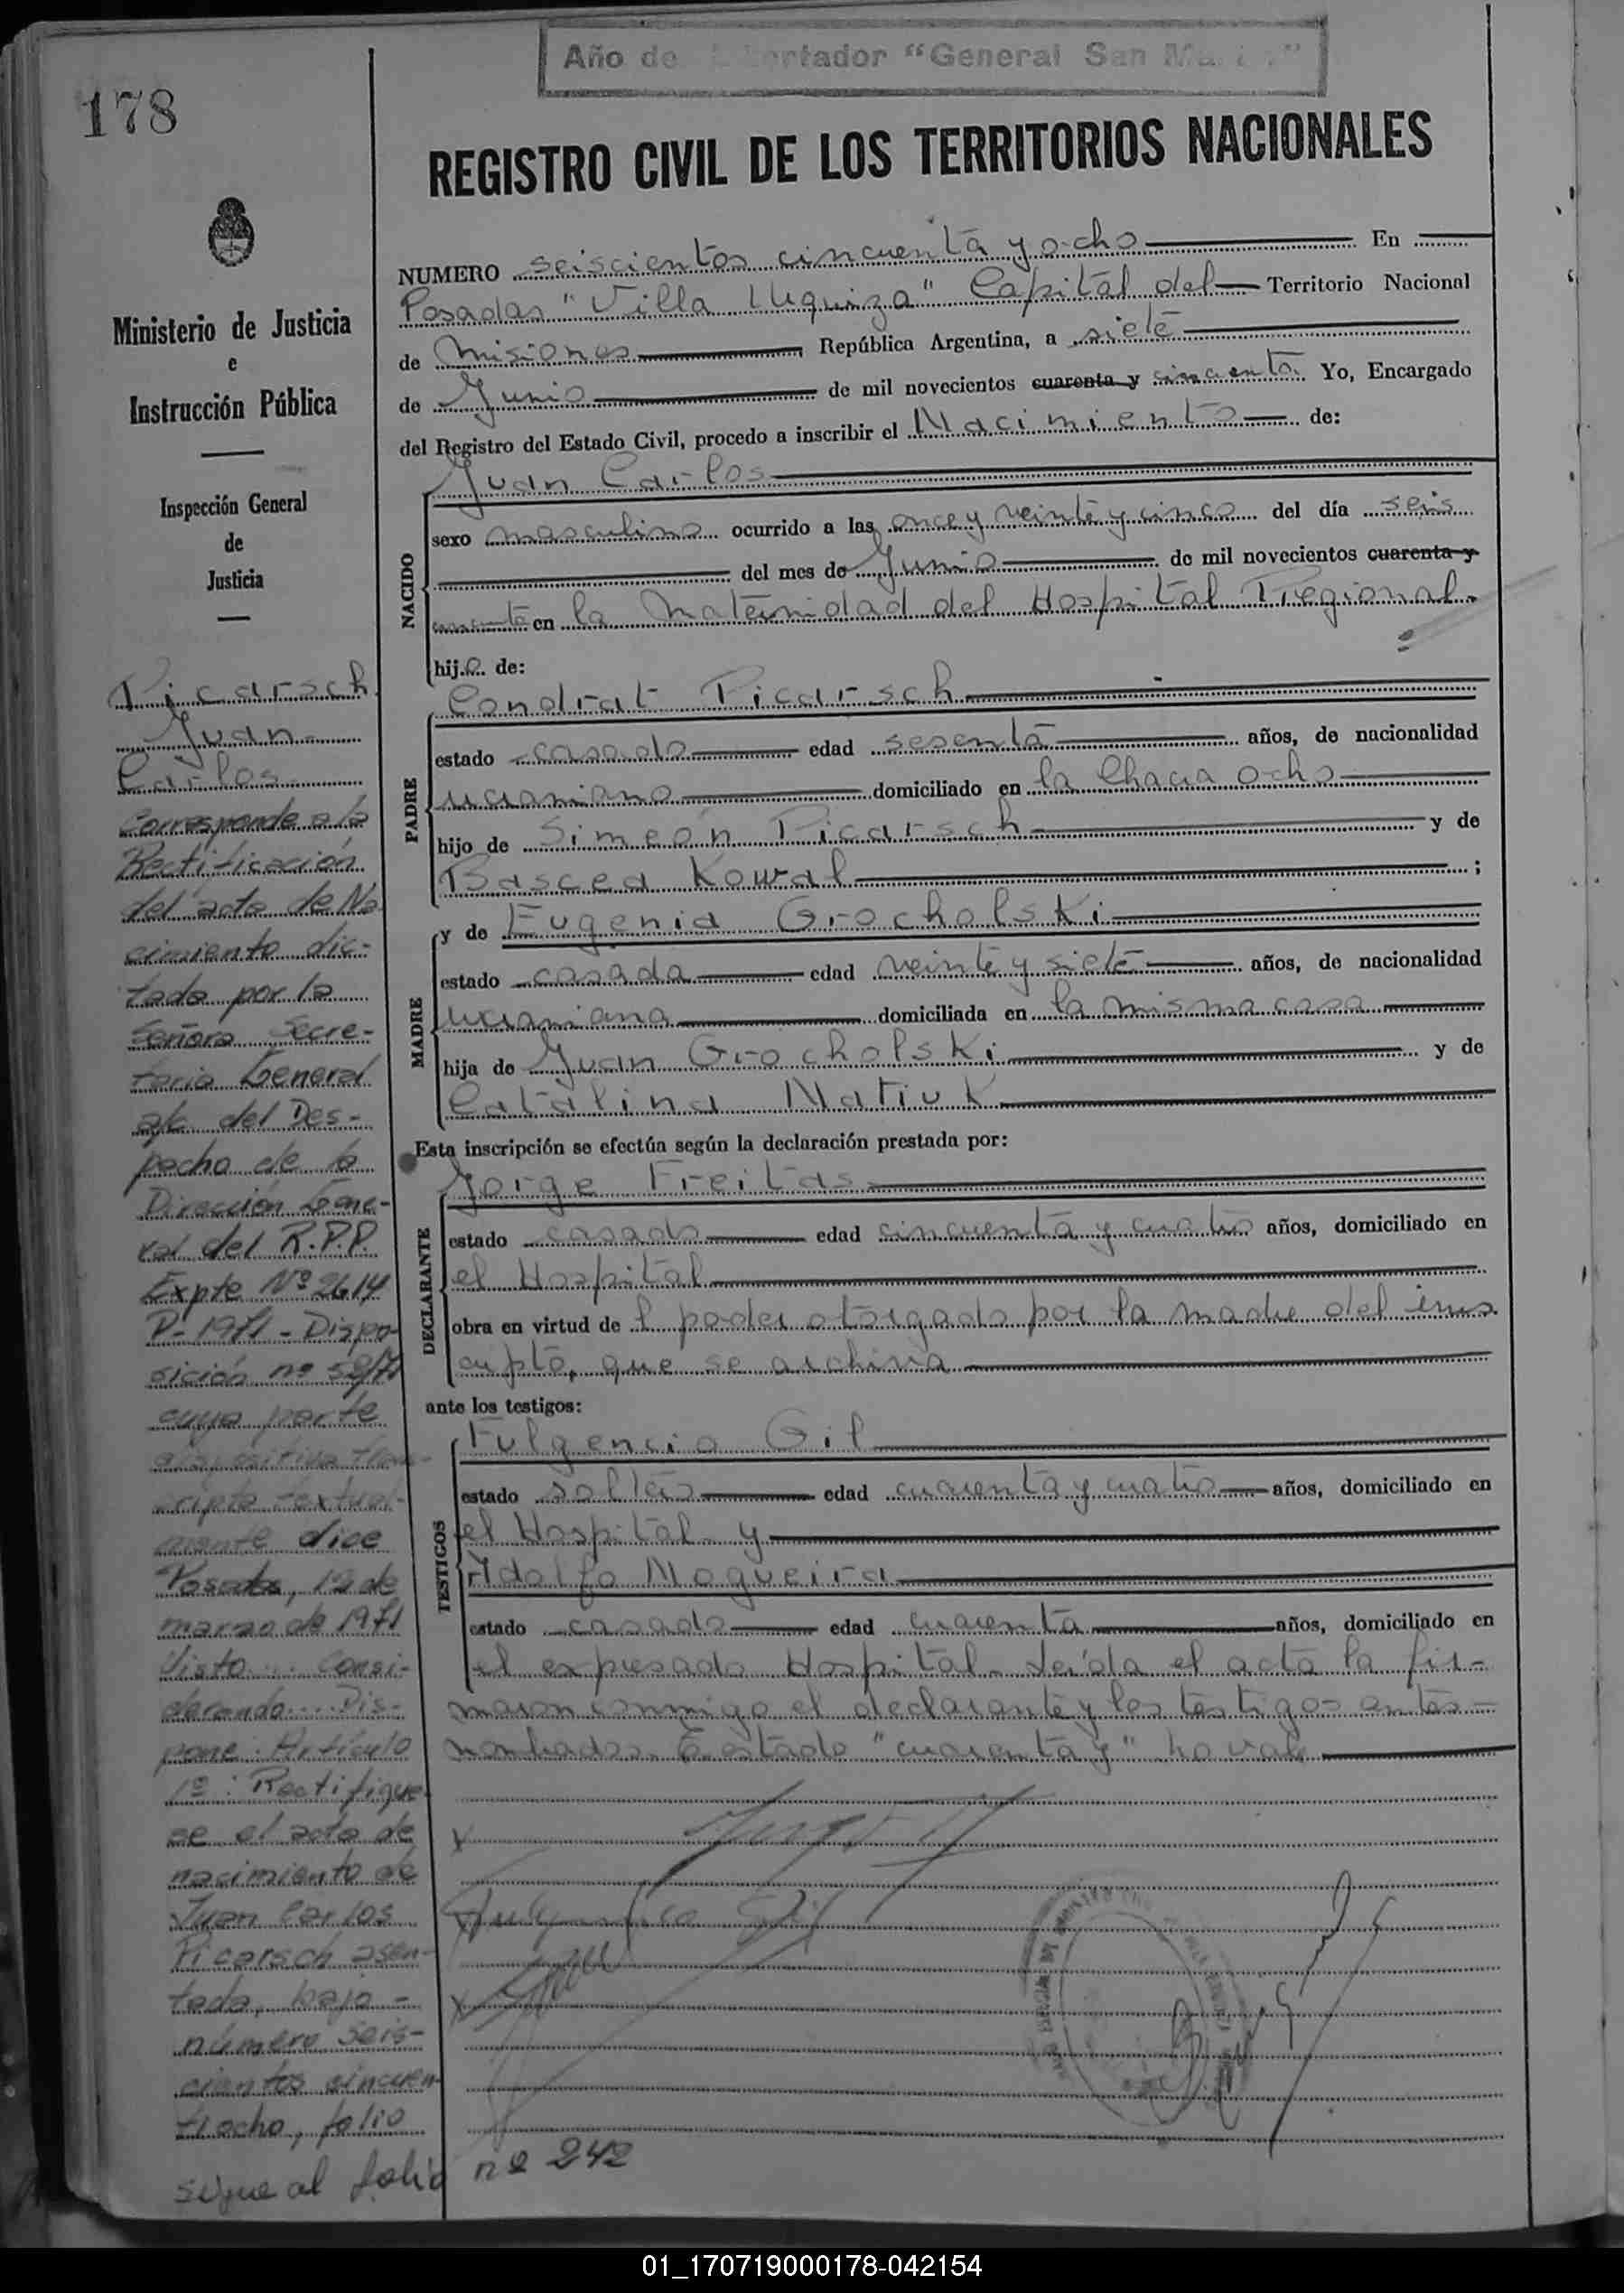 Año de Libertador "General San Martín"
178
REGISTRO CIVIL DE LOS TERRITORIOS NACIONALES
NUMERO seiscientos cincuenta y ocho En
Posadas "Villa Urquiza" Capital del Territorio Nacional
de Misiones República Argentina, a siete
de Junio de mil novecientos cuarenta y cincuenta Yo, Encargado
del Registro del Estado Civil, procedo a inscribir el Nacimiento de:
NACIDO
Juan Carlos
sexo masculino ocurrido a las once y veinte y cinco del día seis
del mes de Junio de mil novecientos cuarenta y
cincuenta en la Maternidad del Hospital Regional.
hijo de:
PADRE
Condrat Picarsch
estado casado edad sesenta años, de nacionalidad
ucraniano domiciliado en la Chacra ocho
hijo de Simeón Picarsch y de
Bascea Kowal ;
MADRE
y de Eugenia Grocholski
estado casada edad veinte y siete años, de nacionalidad
ucraniana domiciliada en la misma casa
hija de Juan Grocholski y de
Catalina Matiuk
Esta inscripción se efectúa según la declaración prestada por:
DECLARANTE
Jorge Freitas
estado casado edad cincuenta y cuatro años, domiciliado en
el Hospital
obra en virtud de l poder otorgado por la madre del ins
cripto, que se archiva
ante los testigos:
TESTIGOS
Fulgencio Gil
estado soltero edad cuarenta y cuatro años, domiciliado en
el Hospital y
Adolfo Nogueira
estado casado edad cuarenta años, domiciliado en
el expresado Hospital. Leída el acta la fir-
maron conmigo el declarante y los testigos antes
nombrados. Testado "cuarenta y" no vale
Ministerio de Justicia
e
Instrucción Pública
Inspección General
de
Justicia
Picarsch
Juan
Carlos
Corresponde a la
Rectificación
del acta de Na
cimiento dic-
tada por la
Señora Secre-
taria General
a/c del Des-
pacho de la
Dirección Gene-
ral del R.P.P.
Expte Nº 2614
P-1971-Dispo-
sición nº 52/71
cuya parte
dispositiva trans-
cripta textual-
mente dice
Posadas, 12 de
marzo de 1971
Visto... Consi-
derando.... Dis-
pone: Artículo
1º: Rectifíque-
se el acta de
nacimiento de
Juan Carlos
Picarsch asen-
tada, bajo-
número seis-
cientos cincuen-
tiocho, folio
sigue al folio nº 242
01_170719000178-042154